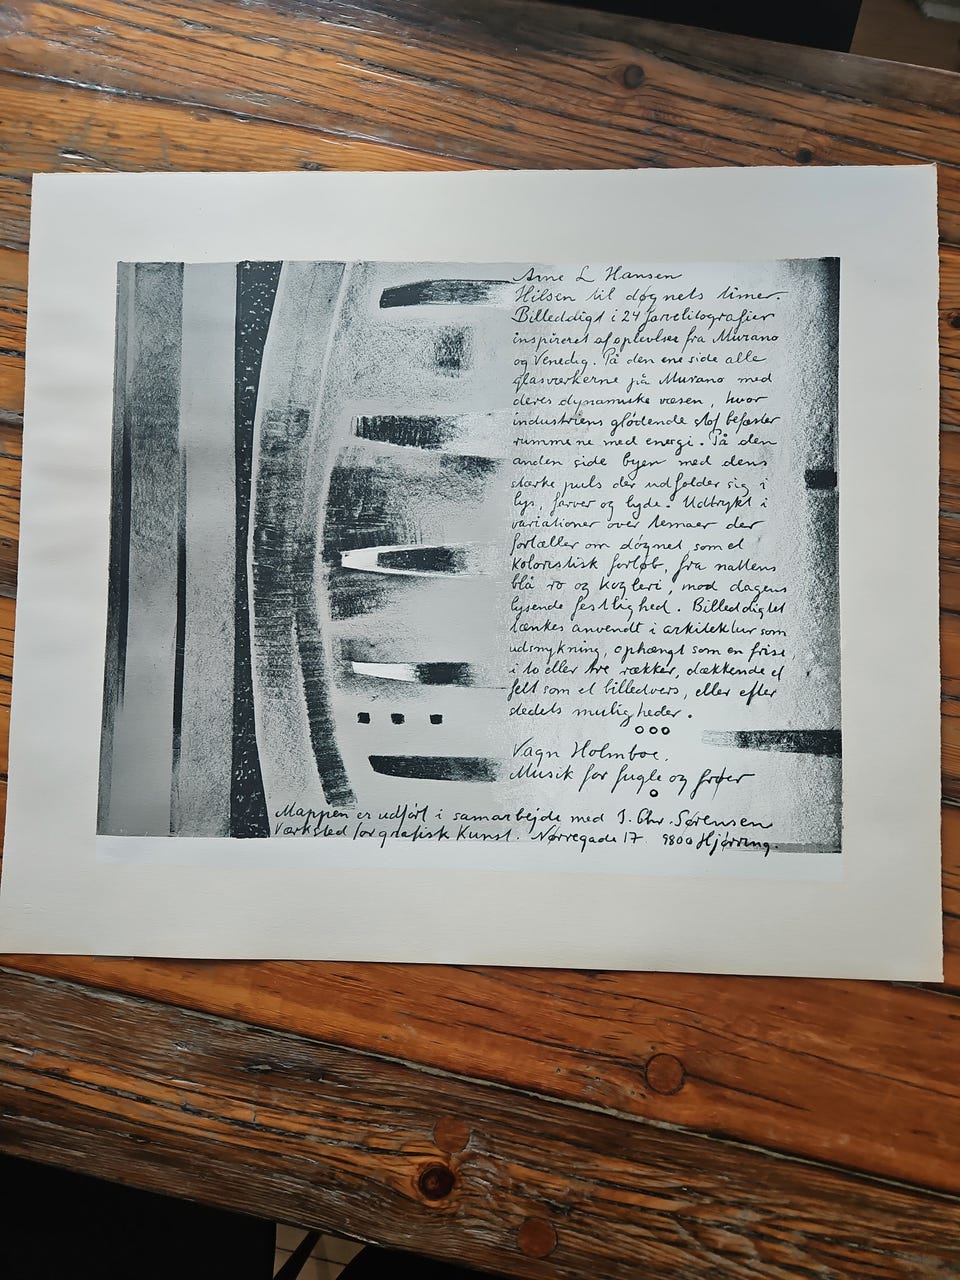 Arne L Hansen
Hilsen til døgnets timer.
Billeddigt i 24 farvelitografier
inspireret af oplevelser fra Murano
og Venedig. På den ene side alle
glasværkerne på Murano med
deres dynamiske væsen, hvor
industriens glødende stof befæster
rummene med energi. På den
anden side byen med dens
stærke puls der udfolder sig i
lys, farver og lyde. Udtrykt i
variationer over temaer der
fortæller om døgnet som et
koloristisk forløb, fra nattens
blå ro og kogleri, mod dagens
lysende festlighed. Billeddigtet
tænkes anvendt i arkitektur som
udsmykning, ophængt som en frise
i to eller tre rækker, dækkende et
felt som et billedvers, eller efter
stedets muligheder.
Vagn Holmboe.
Musik for fugle og frøer
Mappen er udført i samarbejde med J. Chr. Sørensen
Værksted for grafisk Kunst. Nørregade 17. 9800 Hjørring.